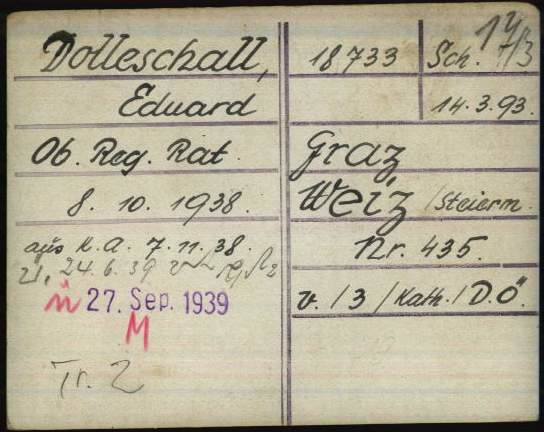 Dolleschall,
Eduard
Ob. Reg. Rat.
8. 10. 1938.
aus K. A. 7. 11. 38.
24.6.39
ü 27. Sep. 1939
M
Tr. 2
18733
Sch.
14.3.93.
Graz
Weiz /Steierm.
Nr. 435.
v. / 3 / Kath. / D.Ö.